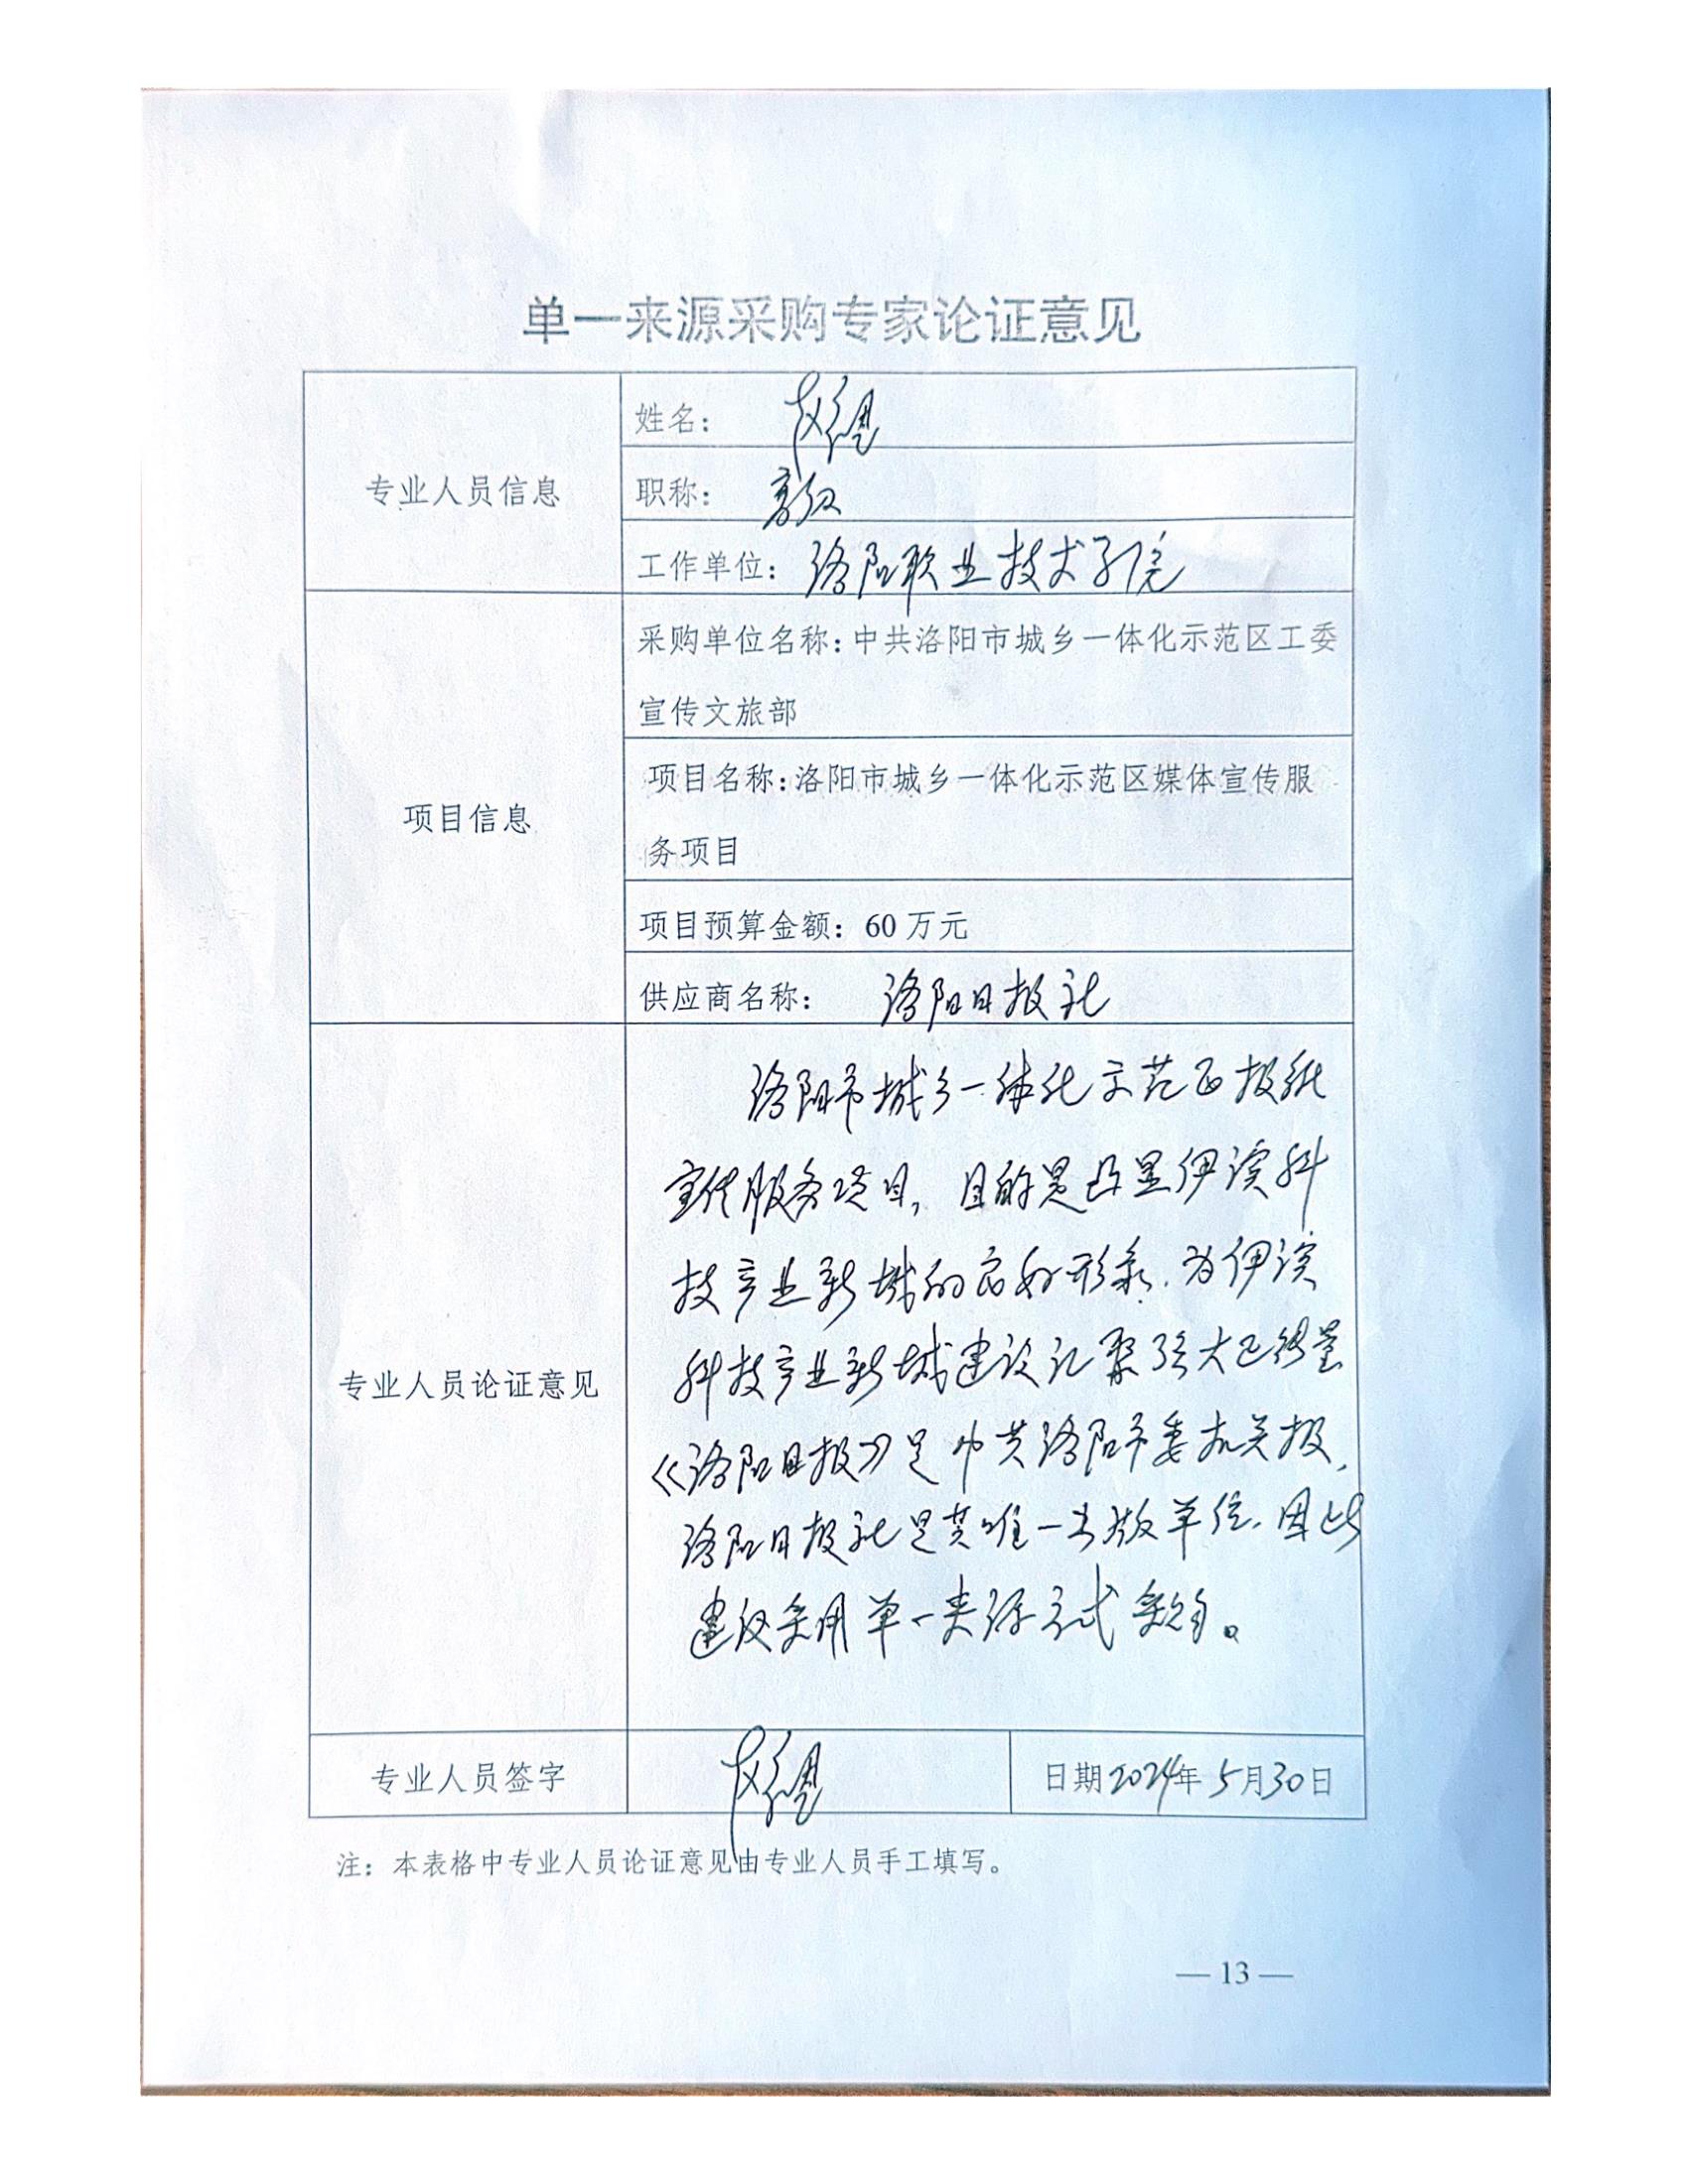 单一来源采购专家论证意见
专业人员信息
姓名：
职称：高级
工作单位：洛阳职业技术学院
项目信息
采购单位名称：中共洛阳市城乡一体化示范区工委
宣传文旅部
项目名称：洛阳市城乡一体化示范区媒体宣传服
务项目
项目预算金额：60 万元
供应商名称：洛阳日报社
专业人员论证意见
洛阳市城乡一体化示范区报纸
宣传服务项目，目的是凸显伊滨科
技产业新城的良好形象，为伊滨
科技产业新城建设汇聚强大正能量
《洛阳日报》是中共洛阳市委机关报，
洛阳日报社是其唯一出版单位，因此
建议采用单一来源方式采购。
专业人员签字
日期2024年5月30日
注：本表格中专业人员论证意见由专业人员手工填写。
—13—